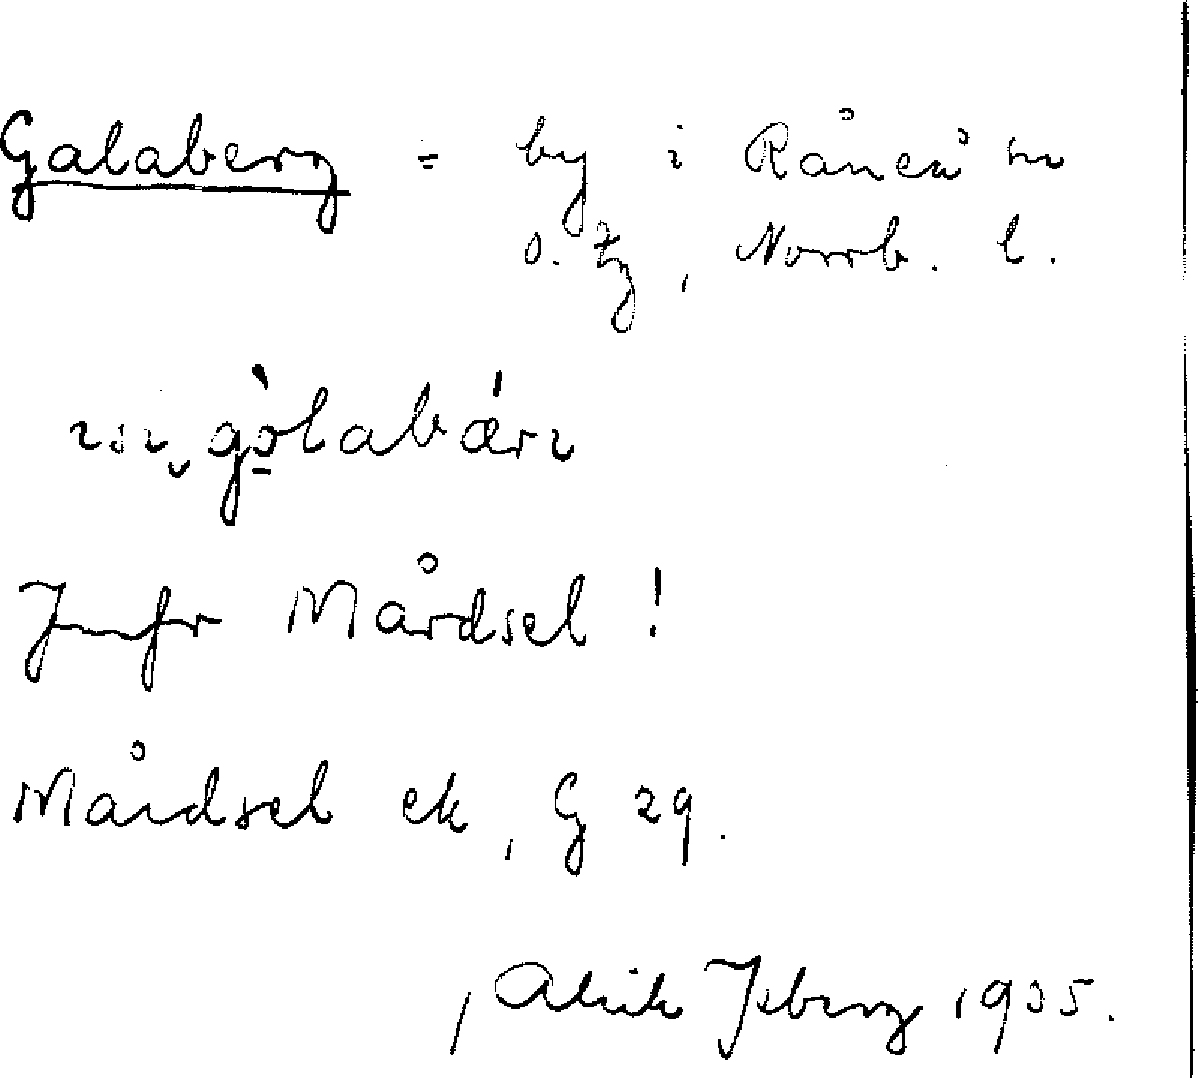 Galaberg = by i Råneå sn
o. tg, Norrb. l.
gòlabǽrı
Jmfr Mårdsel!
Mårdsel ek, G 29.
Alrik Isberg 1935.